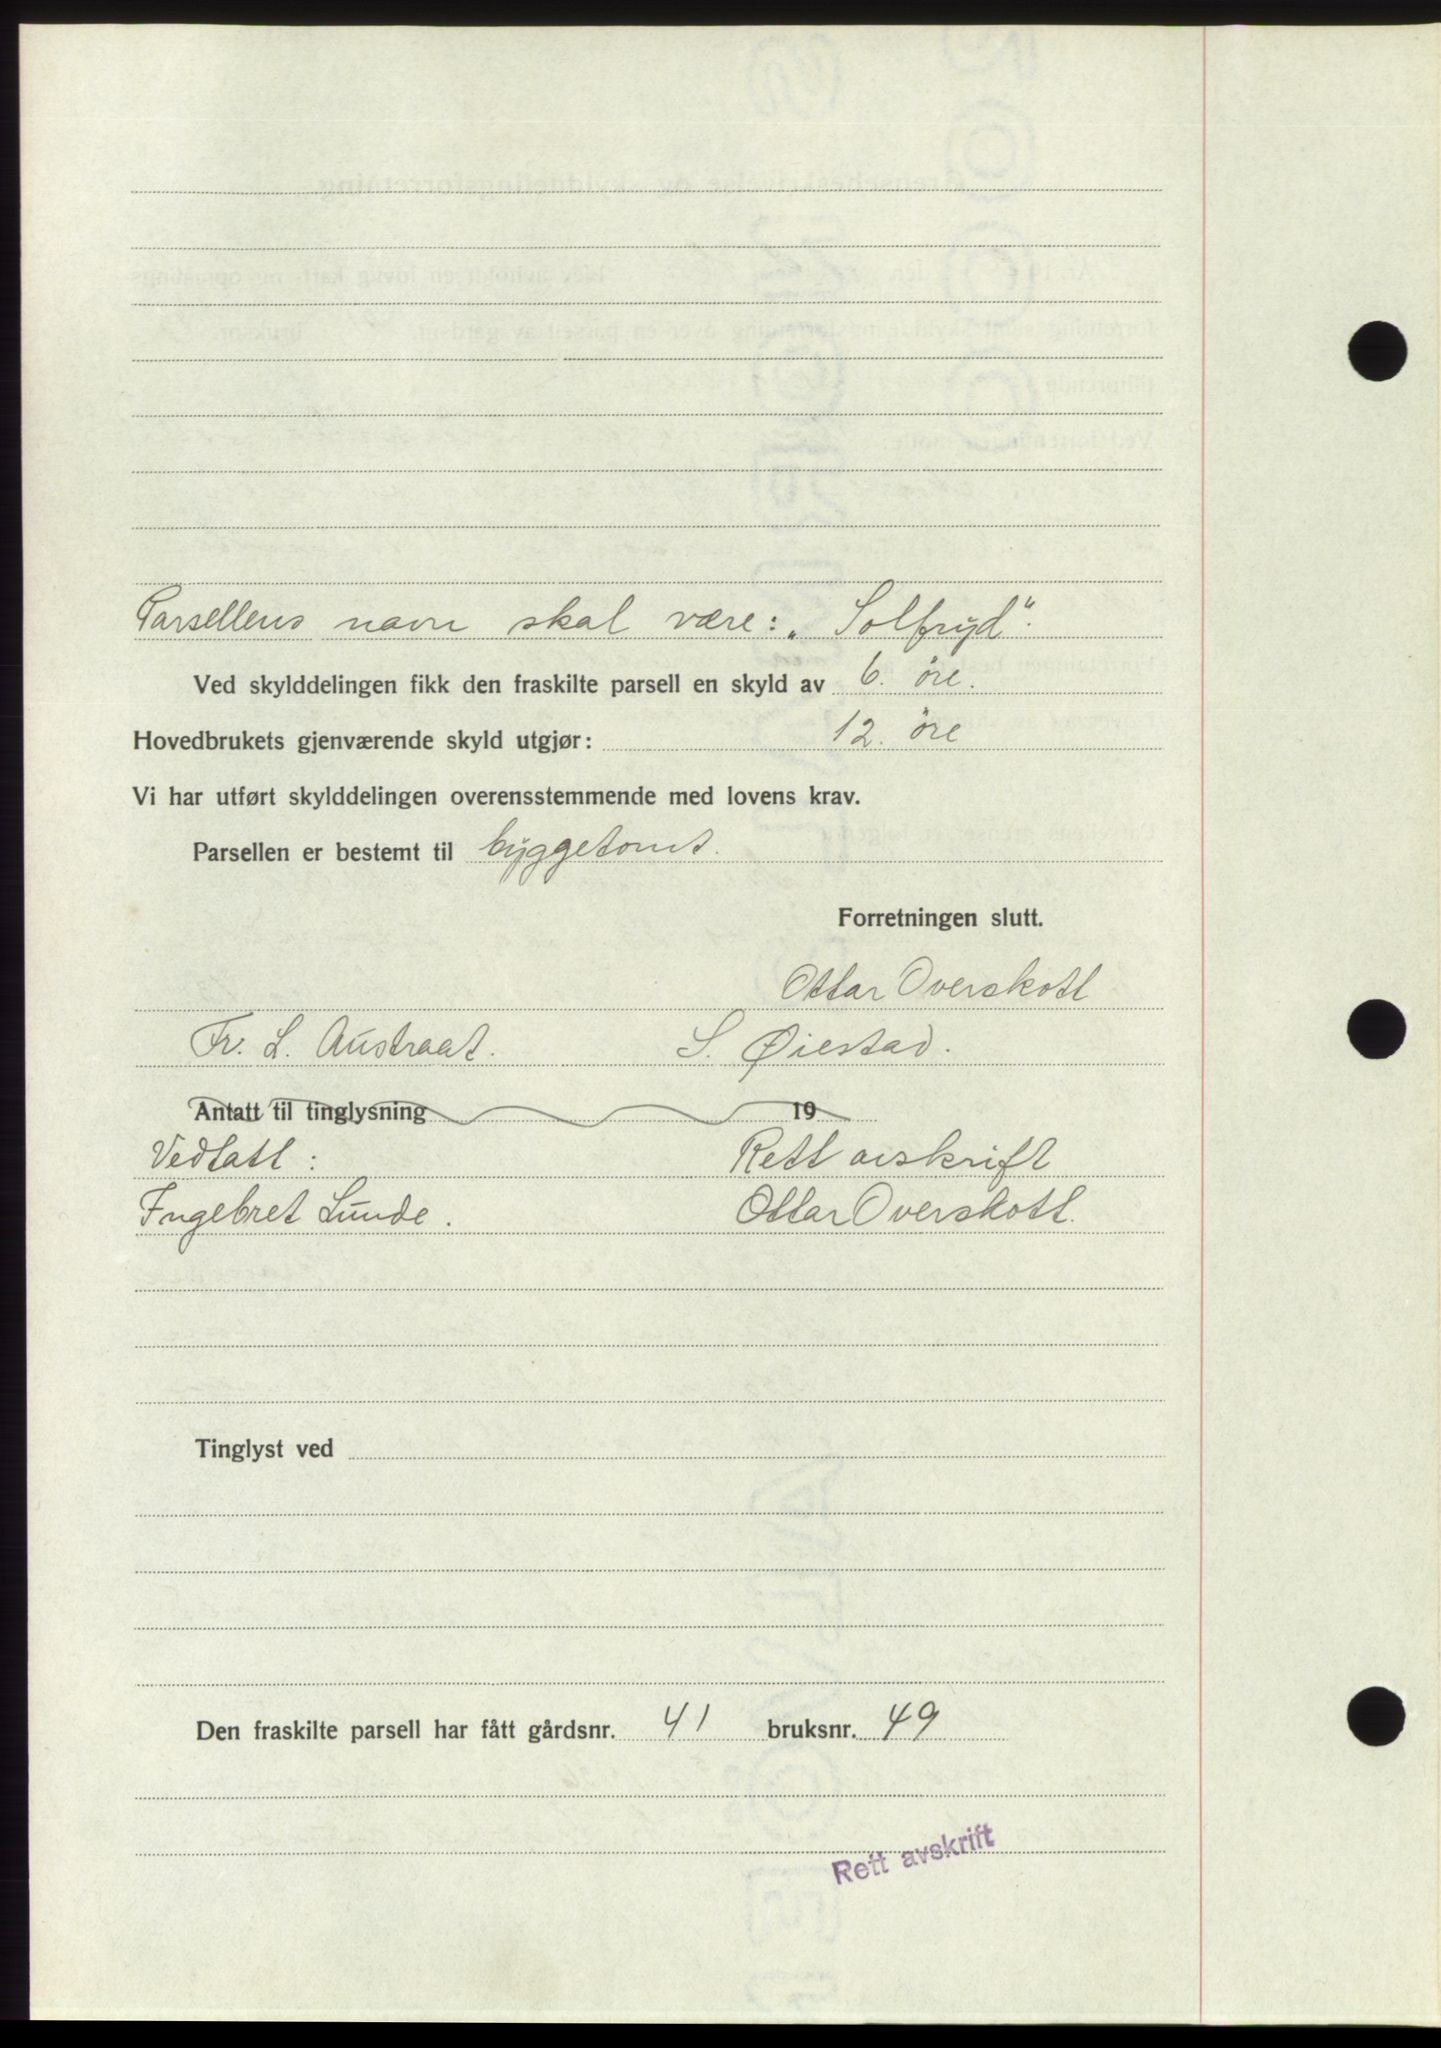 Parsellens navn skal være: „Solfryd".
Ved skylddelingen fikk den fraskilte parsell en skyld av 6. öre.
Hovedbrukets gjenværende skyld utgjør: 12. öre
Vi har utført skylddelingen overensstemmende med lovens krav.
Parsellen er bestemt til byggetomt.
Forretningen slutt.
Ottar Overskott
Fr. L. Austraat. S. Øiestad.
Antatt til tinglysning 19
Vedtatt: Rett avskrift
Ingebret Lunde. Ottar Overskott.
Tinglyst ved
Den fraskilte parsell har fått gårdsnr. 41 bruksnr. 49
Rett avskrift